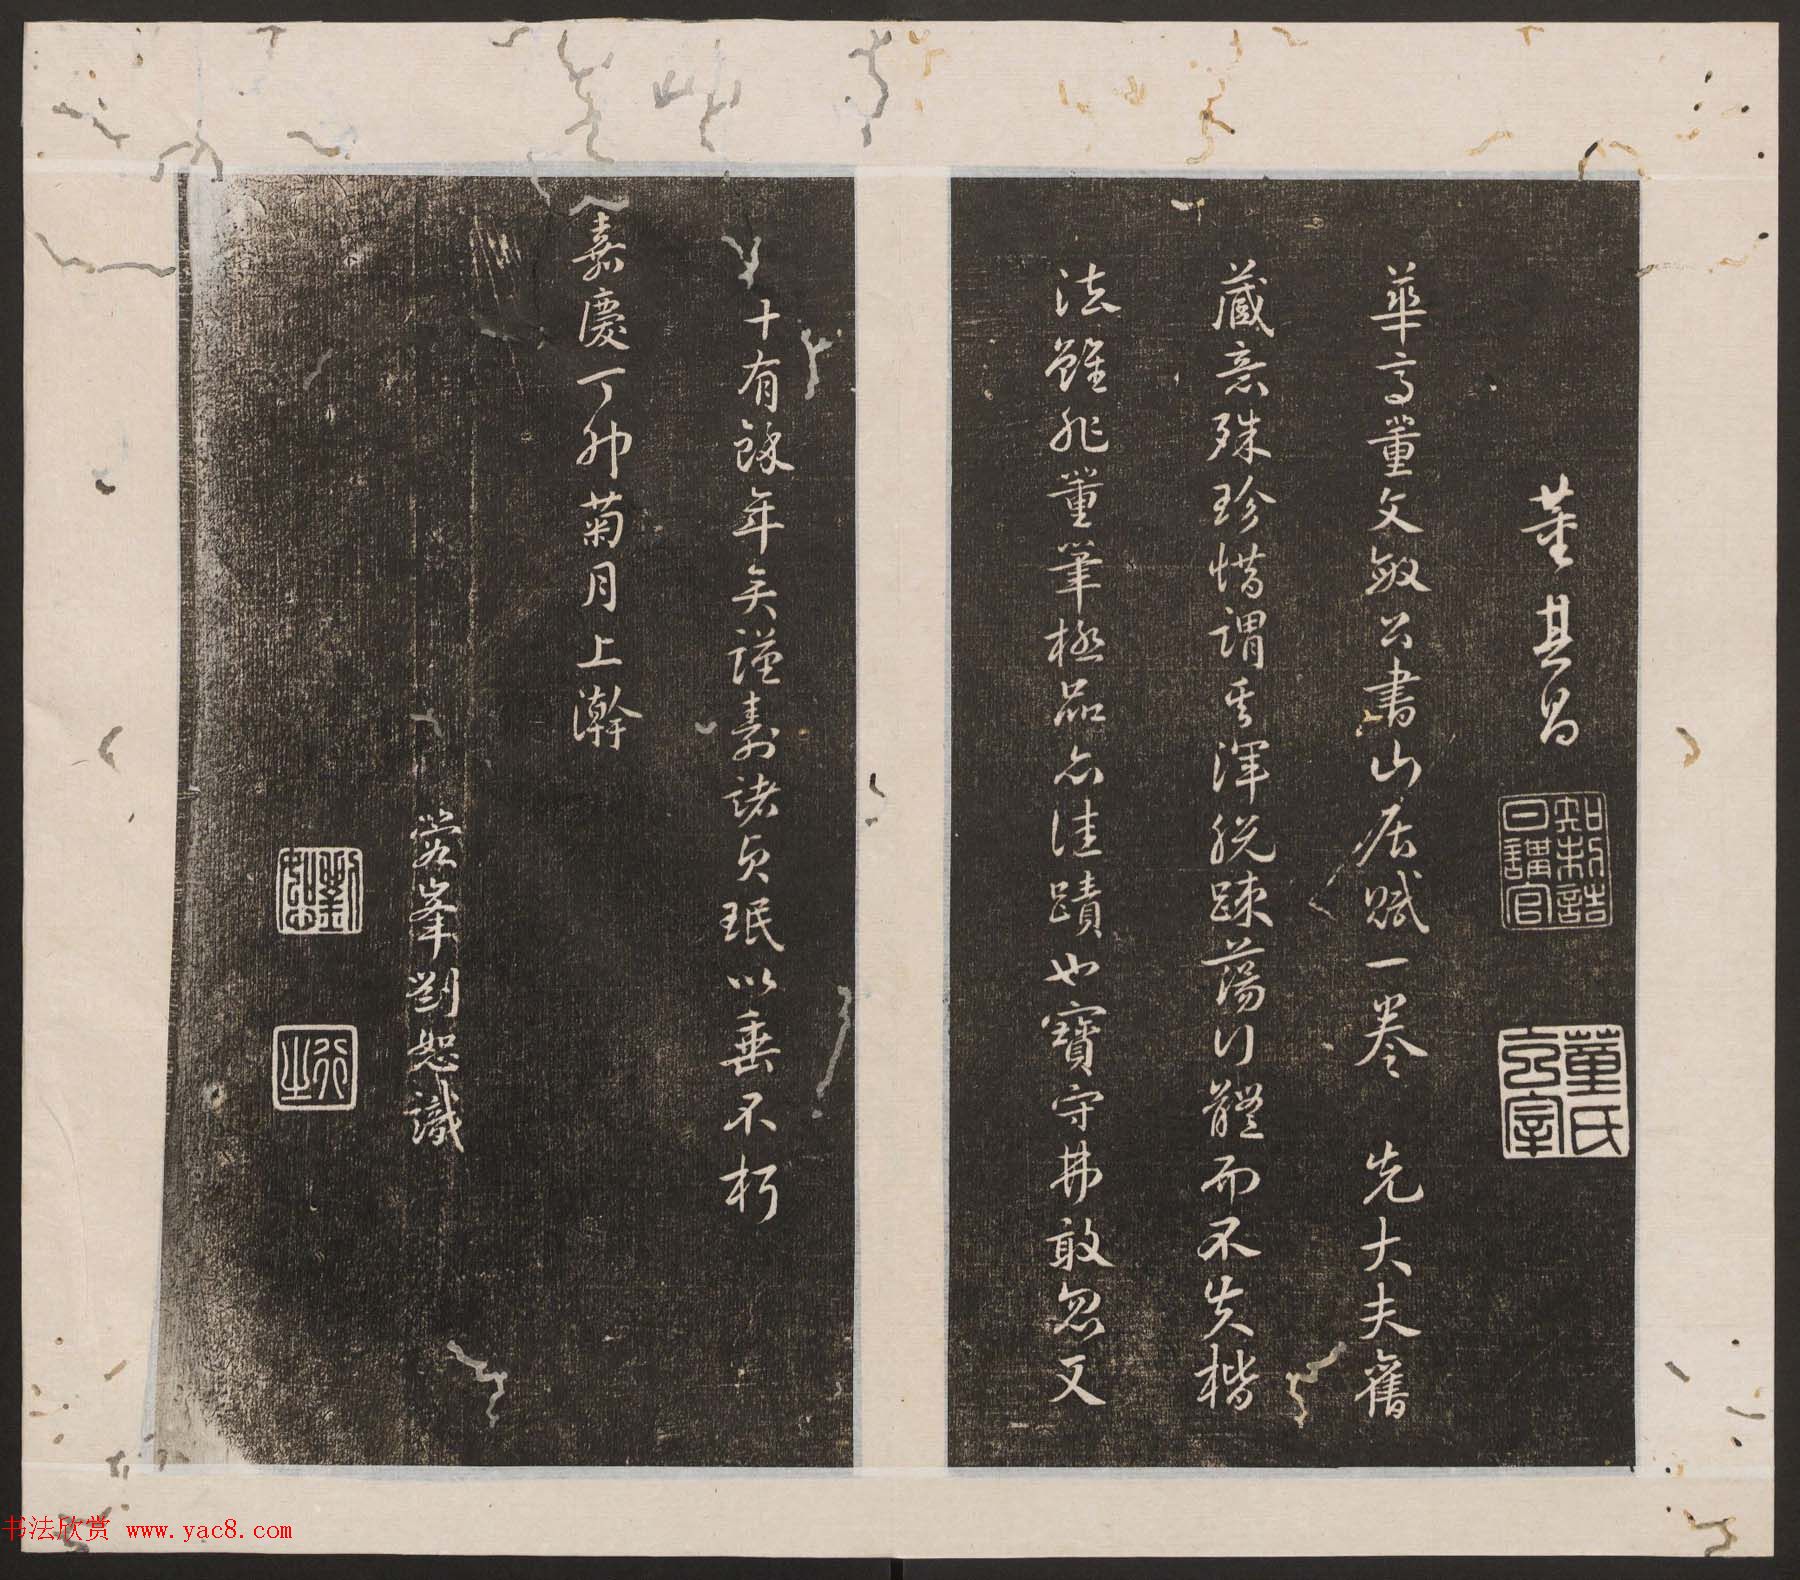 董其昌
知制誥日講官
董氏玄宰
華亭董文敏公書山居賦一卷 先大夫舊
藏意殊珍惜謂其渾脫踈蕩行體而不失楷
法雖非董筆極品亦佳蹟也寶守弗敢忽又
十有餘年矣謹壽諸貞珉以垂不朽
嘉慶丁卯菊月上澣
蓉峯劉恕識
劉恕
行之
书法欣赏 www.yac8.com